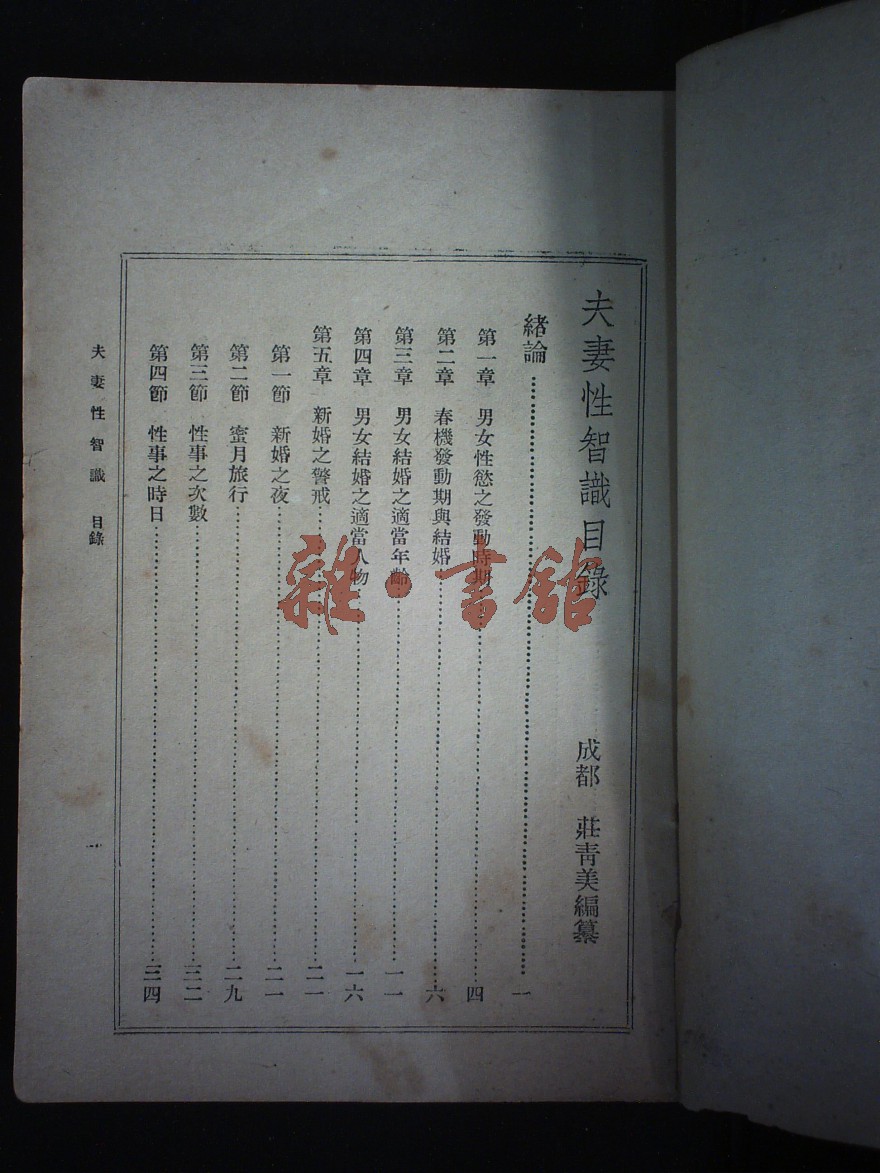 夫妻性智識目錄
成都 莊靑美編纂
緒論⋯⋯一
第一章 男女性慾之發動時期⋯⋯四
第二章 春機發動期與結婚⋯⋯六
第三章 男女結婚之適當年齡⋯⋯一一
第四章 男女結婚之適當人物⋯⋯一六
第五章 新婚之警戒⋯⋯二一
第一節 新婚之夜⋯⋯二一
第二節 蜜月旅行⋯⋯二九
第三節 性事之次數⋯⋯三二
第四節 性事之時日⋯⋯三四
夫妻性智識 目錄
一
雜·書舘